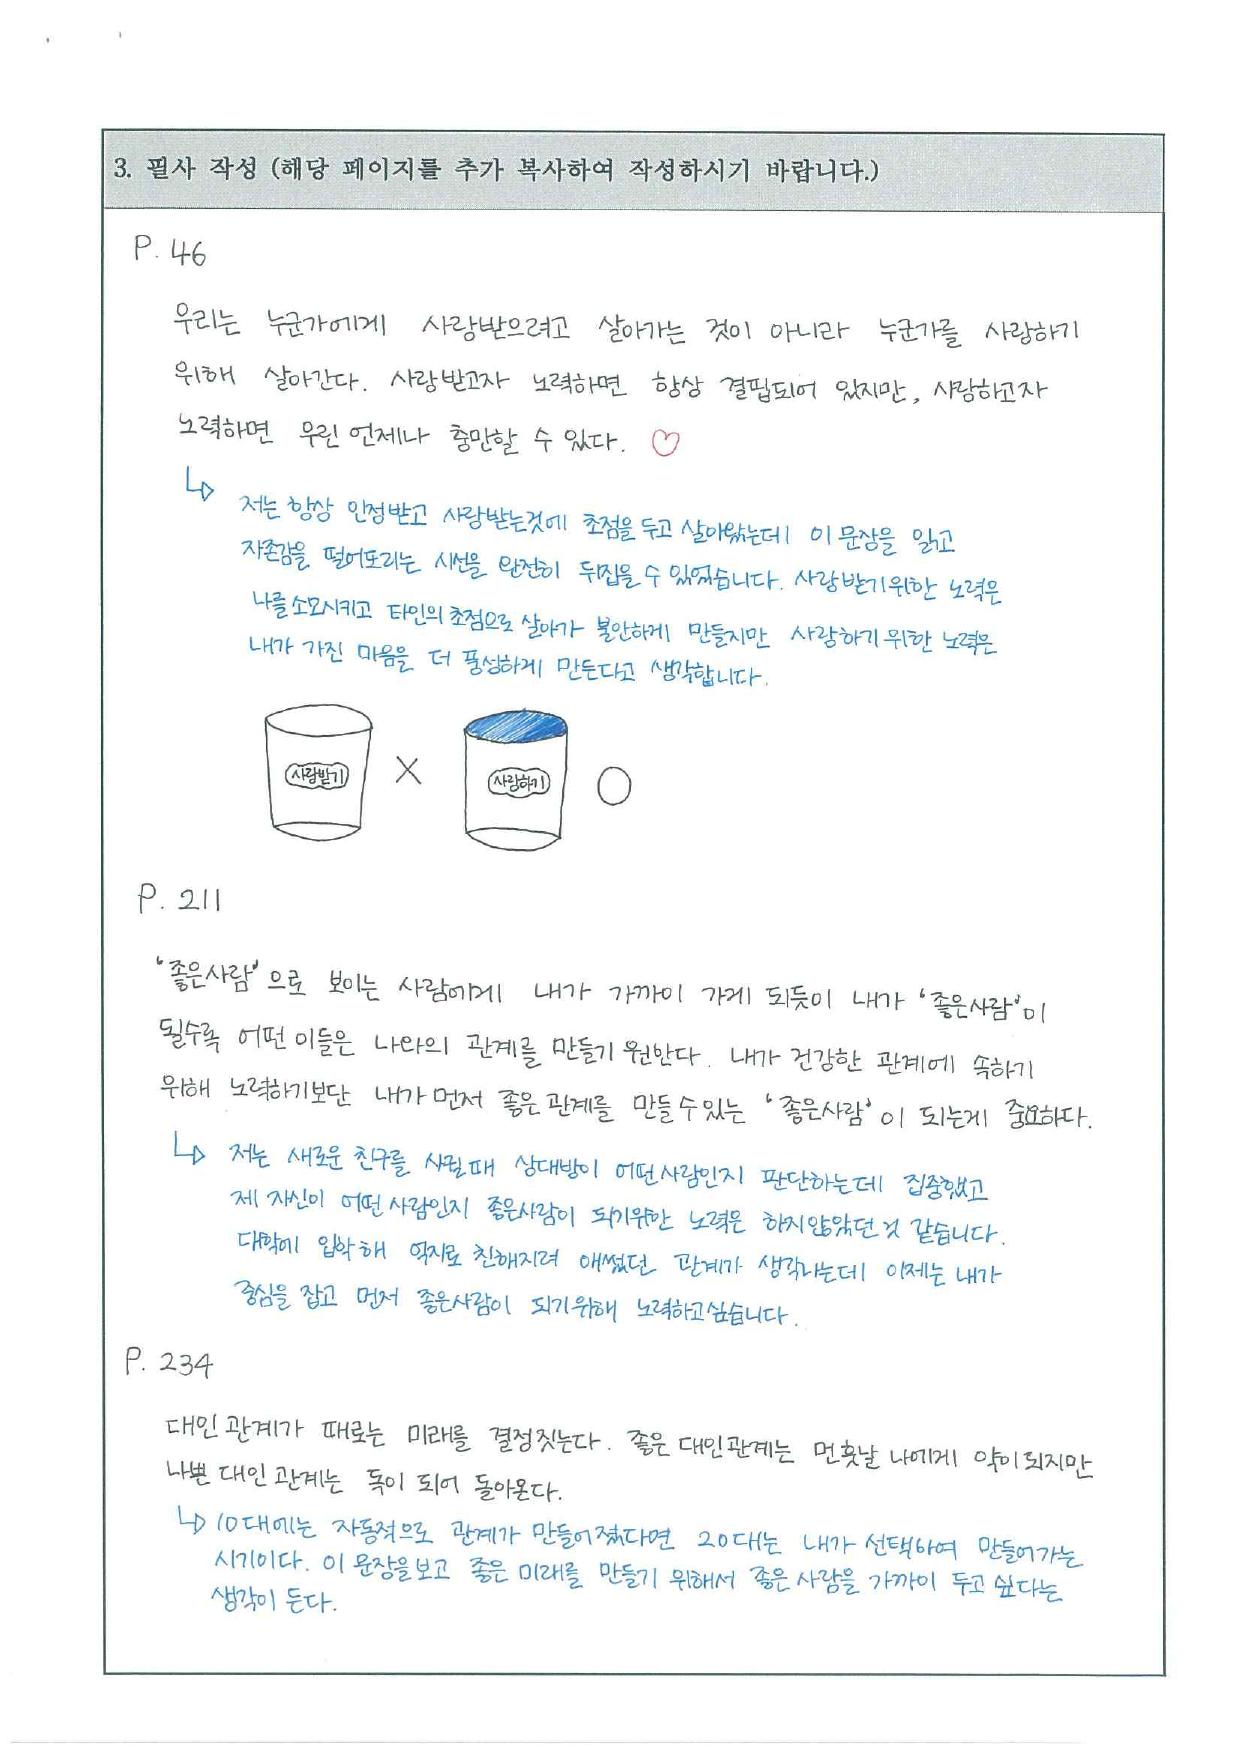 3. 필사 작성 (해당 페이지를 추가 복사하여 작성하시기 바랍니다.)
P. 46
우리는 누군가에게 사랑받으려고 살아가는 것이 아니라 누군가를 사랑하기
위해 살아간다. 사랑받고자 노력하면 항상 결핍되어 있지만, 사랑하고자
노력하면 우린 언제나 충만할 수 있다. ♡
↳ 저는 항상 인정받고 사랑받는것에 초점을 두고 살아왔는데 이 문장을 읽고
자존감을 떨어뜨리는 시선을 완전히 뒤집을 수 있었습니다. 사랑받기위한 노력은
나를소모시키고 타인의초점으로 살아가 불안하게 만들지만 사랑하기위한 노력은
내가 가진 마음을 더 풍성하게 만든다고 생각합니다.
사랑받기 X 사랑하기 O
P. 211
'좋은사람'으로 보이는 사람에게 내가 가까이 가게 되듯이 내가 '좋은사람'이
될수록 어떤 이들은 나와의 관계를 만들기 원한다. 내가 건강한 관계에 속하기
위해 노력하기보단 내가 먼저 좋은관계를 만들수있는 '좋은사람'이 되는게 중요하다.
↳ 저는 새로운 친구를 사귈때 상대방이 어떤사람인지 판단하는데 집중했고
제 자신이 어떤사람인지 좋은사람이 되기위한 노력은 하지않았던것 같습니다.
대학에 입학해 억지로 친해지려 애썼던 관계가 생각나는데 이제는 내가
중심을 잡고 먼저 좋은사람이 되기위해 노력하고싶습니다.
P. 234
대인관계가 때로는 미래를 결정짓는다. 좋은 대인관계는 먼훗날 나에게 약이되지만
나쁜 대인관계는 독이 되어 돌아온다.
↳ 10대에는 자동적으로 관계가 만들어졌다면 20대는 내가 선택하여 만들어가는
시기이다. 이 문장을보고 좋은 미래를 만들기 위해서 좋은사람을 가까이 두고 싶다는
생각이 든다.